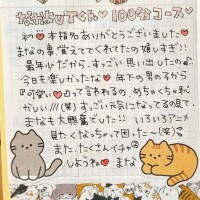 なおより Tくん♡ 100分コース♡
初♡本指名ありがとうございました♡
まなの事覚えててくれてたの嬉しすぎ!!
最年少だから、すっごい思い出したの♪
今日も楽しかったな♡ 年下の男の子から
『可愛い♡』って言われるの めちゃくちゃ恥
かしい///(笑) すっごい元気になってるの見て、
まなも大興奮でした!! いろいろアニメ
見たくなっちゃって困った〜(笑)
また、たくさんイチャ②
しようね♡ まな